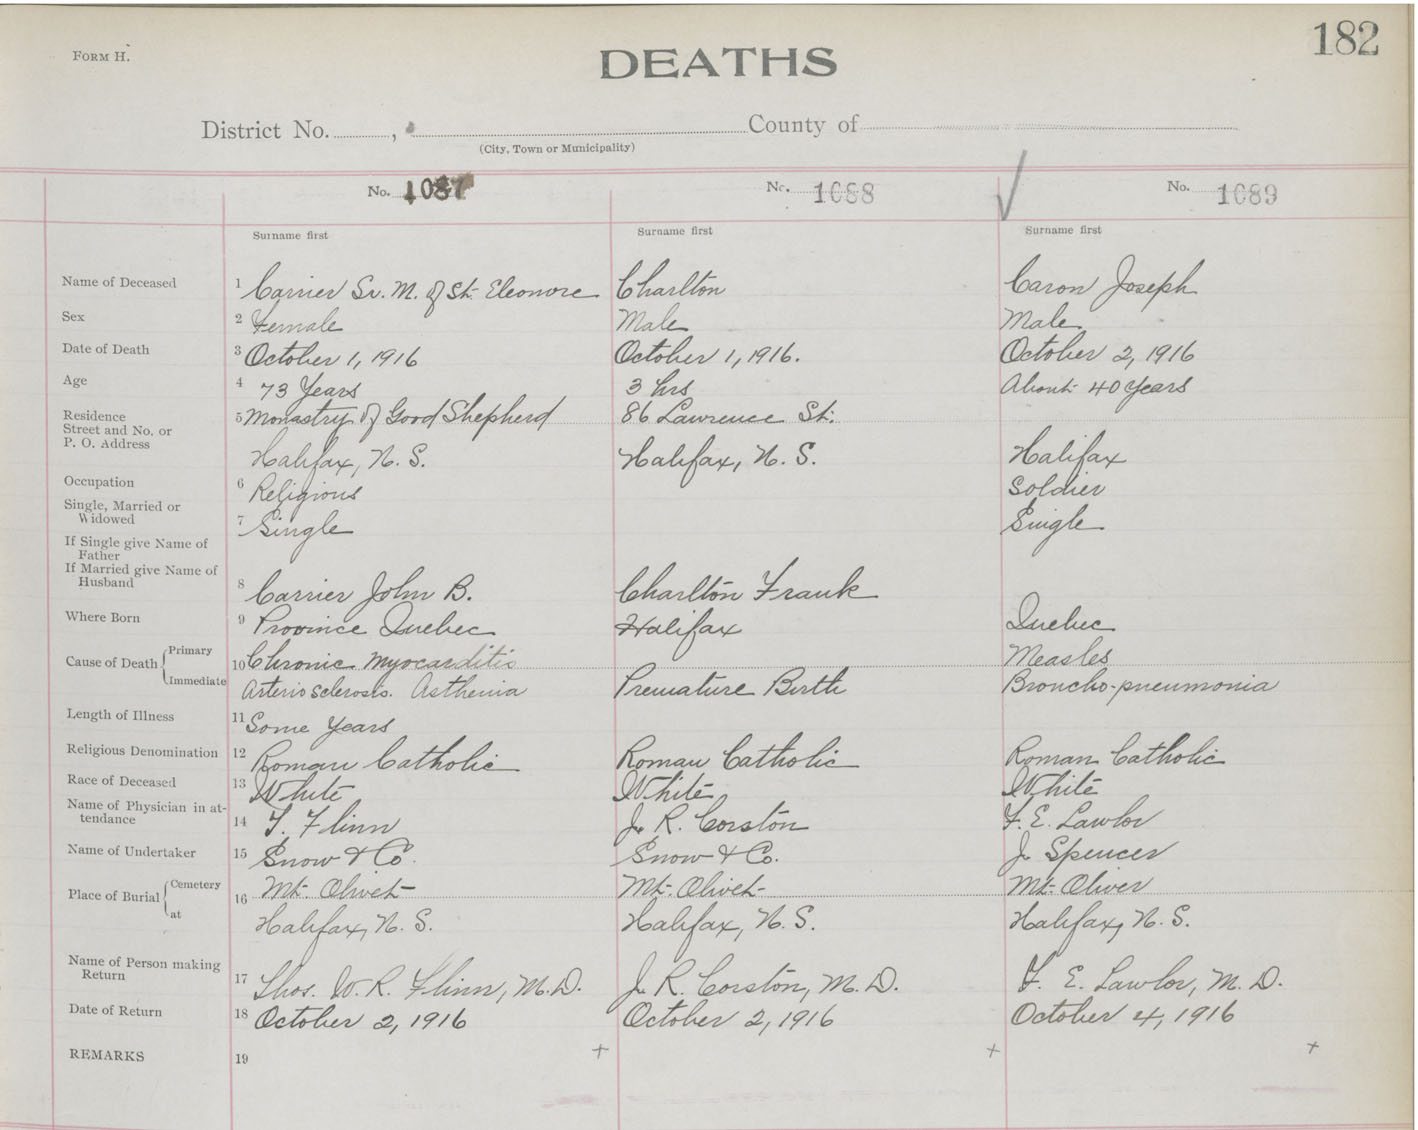 182
FORM H.
DEATHS
District No. , County of
(City, Town or Municipality)
No. 1087 No. 1088 No. 1089
Surname first Surname first Surname first
Name of Deceased 1 Carrier Sr. M. of St. Eleonore Charlton Caron Joseph
Sex 2 Female Male Male
Date of Death 3 October 1, 1916 October 1, 1916. October 2, 1916
Age 4 73 Years 3 hrs About 40 years
Residence 5 Monastry of Good Shepherd 86 Lawrence St.
Street and No. or
P. O. Address Halifax, N. S. Halifax, N. S. Halifax
Occupation 6 Religious Soldier
Single, Married or
Widowed 7 Single Single
If Single give Name of
Father
If Married give Name of
Husband 8 Carrier John B. Charlton Frank
Where Born 9 Province Quebec Halifax Quebec
Cause of Death Primary 10 Chronic Myocarditis Measles
Immediate Arterio sclerosis. Asthenia Premature Birth Broncho-pneumonia
Length of Illness 11 Some Years
Religious Denomination 12 Roman Catholic Roman Catholic Roman Catholic
Race of Deceased 13 White White White
Name of Physician in at-
tendance 14 T. Flinn J. R. Corston F. E. Lawlor
Name of Undertaker 15 Snow & Co. Snow & Co. J. Spencer
Place of Burial Cemetery 16 Mt. Olivet Mt. Olivet Mt. Oliver
at Halifax, N. S. Halifax, N. S. Halifax, N. S.
Name of Person making
Return 17 Thos. W. R. Flinn, M.D. J. R. Corston, M.D. F. E. Lawlor, M. D.
Date of Return 18 October 2, 1916 October 2, 1916 October 4, 1916
REMARKS 19 + + +